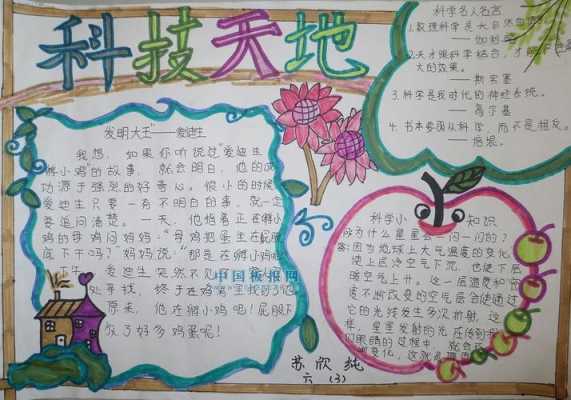 科技天地
发明大王"——爱迪生
我想，如果你听说过"爱迪生
孵小鸡"的故事，就会明白，他的成
功源于强烈的好奇心。很小的时候
爱迪生只要一有不明白的事，就一定
要追问清楚。一天，他指着正在孵小
鸡的母鸡问妈妈："母鸡把蛋坐在屁股
底下干吗？"妈妈说："那是在孵小鸡呢
午，爱迪生突然不见了
处寻找，终于在鸡窝里找到了他
原来，他在孵小鸡呢！屁股下
放了好多鸡蛋呢！
中国板报网
科学名人名言
1.数理科学是大自然
——伽利略
2.天才跟科学结合，才能
大的效果。
——斯宾塞
3.科学是我时代的神经系统。
——高尔基
4.书本要从科学，而不是相反。
——培根。
科学小知识
为什么星星会一闪一闪的？
答：因为地球上大气温度的变化
使上层冷空气下沉，也使下层
暖空气上升。这一层温度和密
度不断改变的空气层会使通过
它的光线发生多次折射，这
样，星星发射的光在传到
们眼睛的过程中，就会
变化，这就是
苏欣纯
六（3）